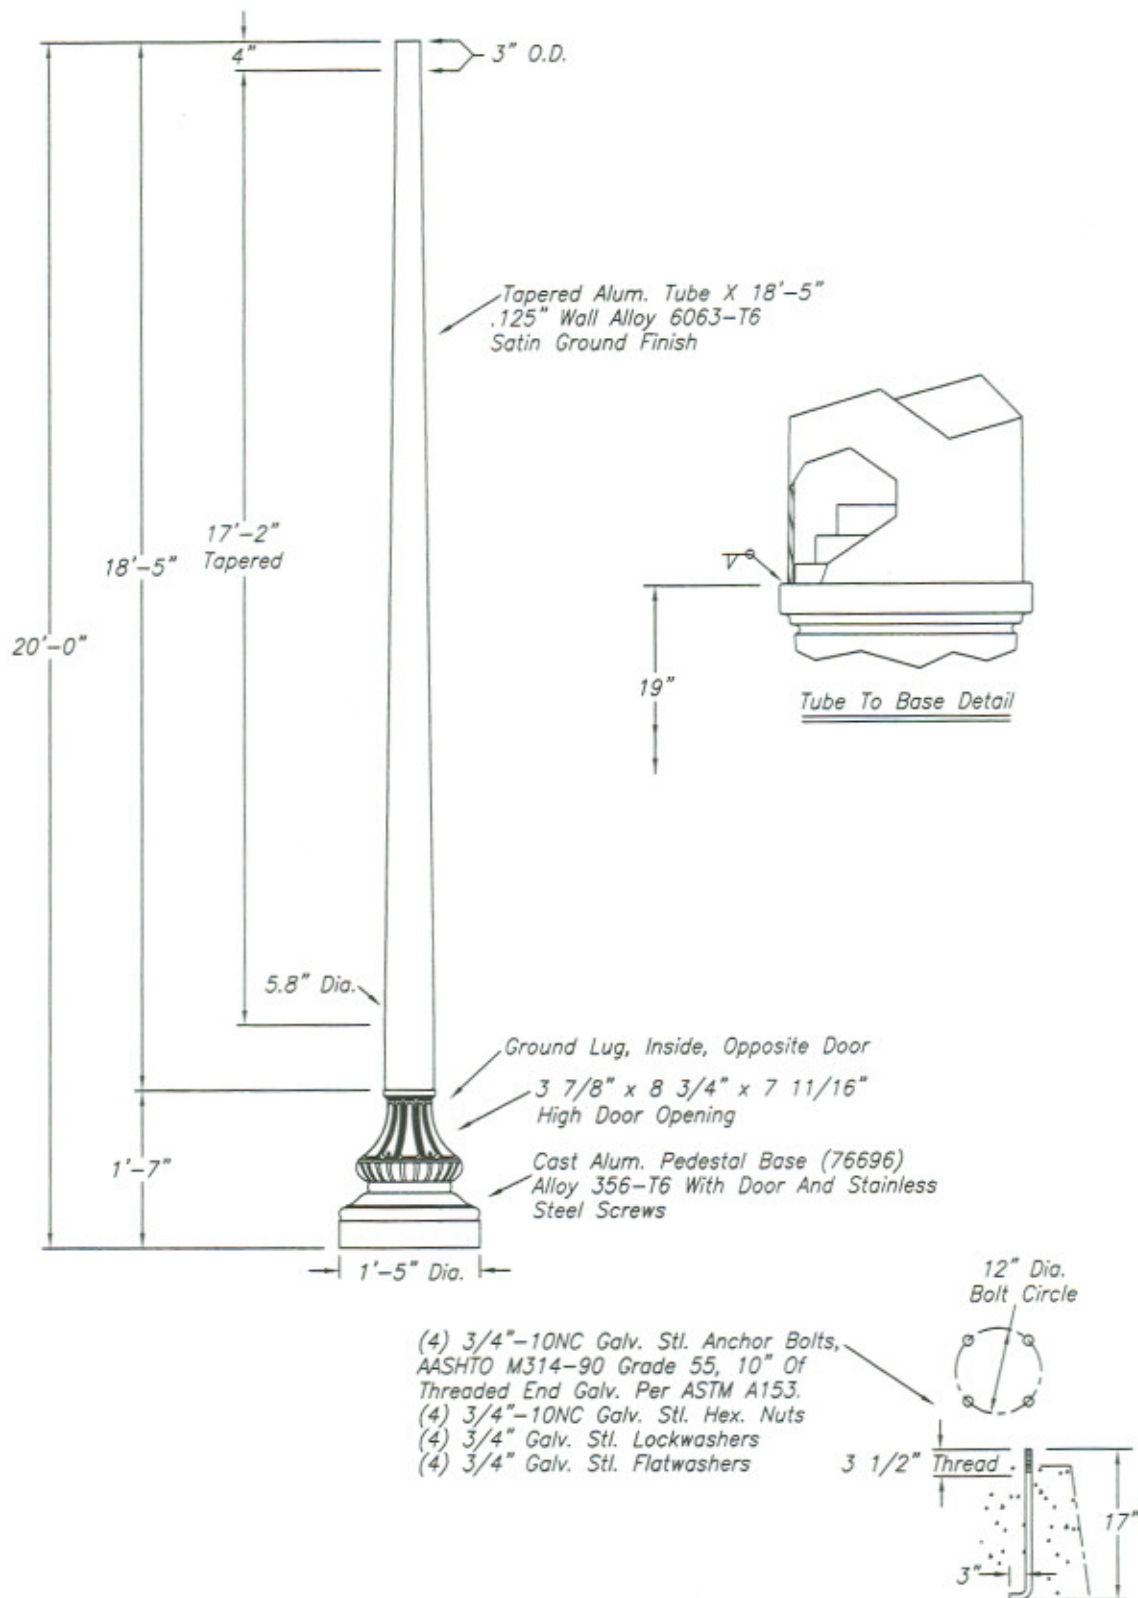 4"
3" O.D.
Tapered Alum. Tube X 18'-5"
.125" Wall Alloy 6063-T6
Satin Ground Finish
17'-2"
Tapered
18'-5"
20'-0"
19"
Tube To Base Detail
5.8" Dia.
Ground Lug, Inside, Opposite Door
3 7/8" x 8 3/4" x 7 11/16"
High Door Opening
1'-7"
Cast Alum. Pedestal Base (76696)
Alloy 356-T6 With Door And Stainless
Steel Screws
1'-5" Dia.
12" Dia.
Bolt Circle
(4) 3/4"-10NC Galv. Stl. Anchor Bolts,
AASHTO M314-90 Grade 55, 10" Of
Threaded End Galv. Per ASTM A153.
(4) 3/4"-10NC Galv. Stl. Hex. Nuts
(4) 3/4" Galv. Stl. Lockwashers
(4) 3/4" Galv. Stl. Flatwashers
3 1/2" Thread
17"
3"